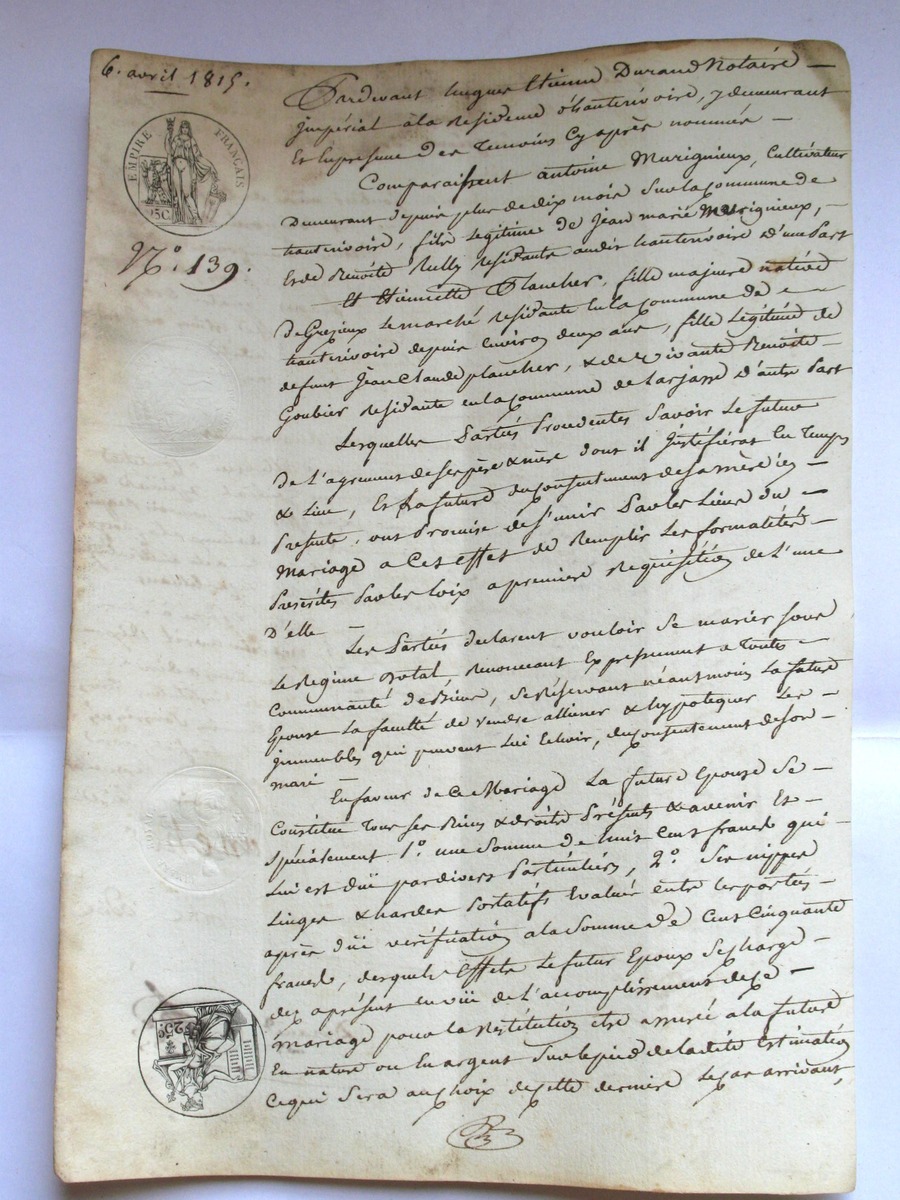 6. avril 1815.
EMPIRE FRANÇAIS
25C
N.º 139.
Pardevant hugues Etienne Durand Notaire
Jmpérial à la Residence d'hauterivoire, y demeurant
Et En presence des Temoins Cy après nommés
Comparaissent antoine Murignieux, Cultivateur
Demeurant depuis plus de dix mois Sur la Commune de
hauterivoire, fils Legitime de Jean marie Murignieux,
Et de Benoite Rully residents audit hauterivoire D'une Part
Et Etiennette Plancher, fille majeure native
de Grezieux Le marché residante En la Commune de
hauterivoire depuis Environ deux ans, fille Légitime de
defunt Jean Claude plancher, & de vivante Benoite
Goubier residante en la Commune de Larjasse D'autre Part
Lesquelles Parties Procedentes Savoir Le future
De L'agrement de Ses père & mère dont il Justifiérat En Temps
& Lieu, Et La future du Consentement de Sa mère ici
Presente, ont Promise de S'unir Par les Liens du
Mariage a Cet effet de Remplir Les formalités
Prescrites Par les Loix a premiere Requisition de L'une
D'elle
Les Parties declarent vouloir Se marier Sous
Le Regime Dotal, Renoncant Expressement a Toute
Communauté de Biens, se Réservant néantmoin La future
Epouse La faculté de vendre alliener & hypotequer Les
Jmmeubles qui peuvent Lui Echoir, du Consentement de Son
mari
En faveur de Ce Mariage La future Epouse Se
Constitue Tous Ses Biens & droits Présents & avenir Et
Spécialement 1º. une Somme de huit Cent francs qui
Lui est düe par divers Particuliers, 2º. Ses nippes
Linges & hardes Portatifs Evalués entre les parties
après düe vérification a la Somme de Cent Cinquante
francs, desquels Effets Le futur Epoux Se Charge
dez apresent en vüe de L'accomplissement de Ce
mariage pour la Restitution être assurée à la future
En nature ou En argent Sur le pied de la dite Estimation
Ce qui Sera au Choix de Cette derniere Le Cas arrivant,
25C